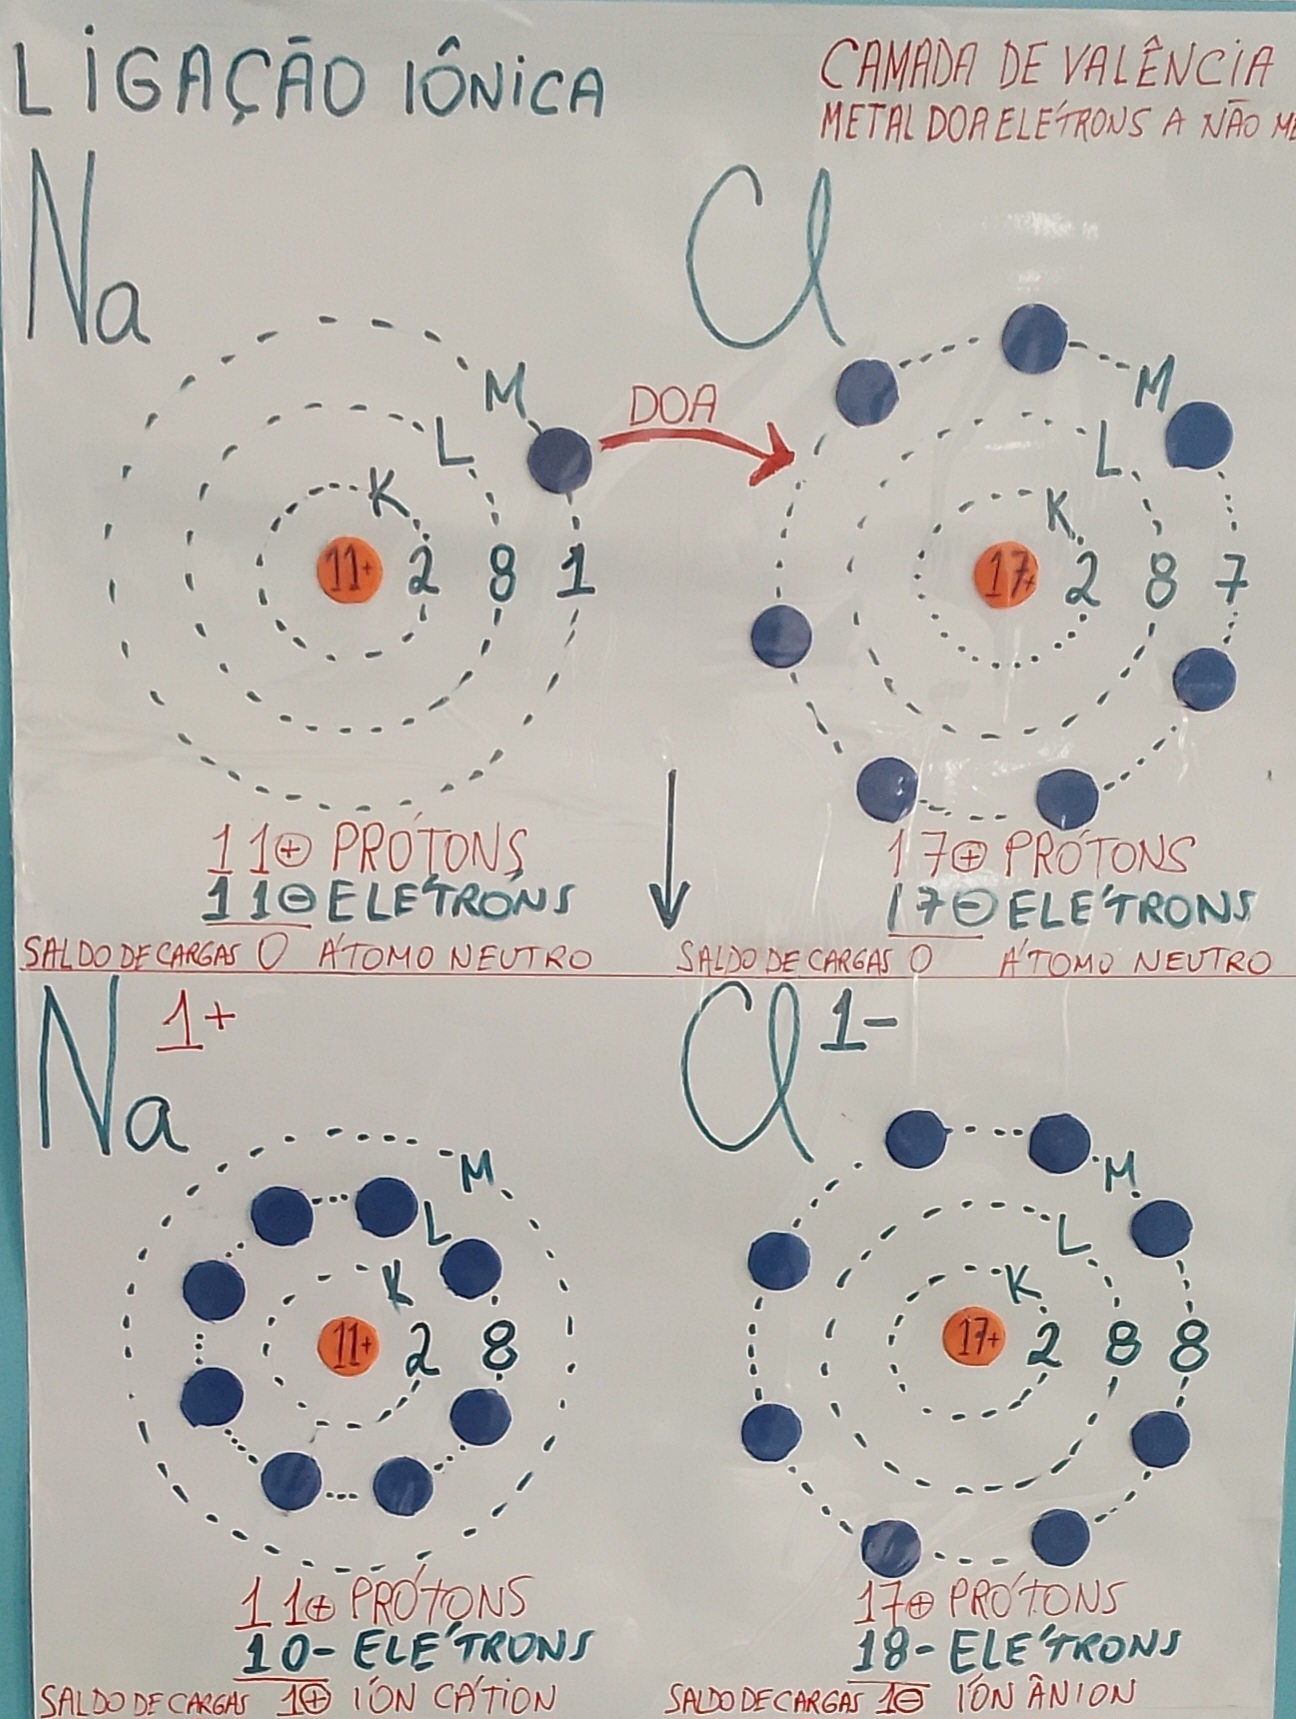 LIGAÇÃO IÔNICA
CAMADA DE VALÊNCIA
METAL DOA ELÉTRONS A NÃO ME
Na
Cl
M
L
K
11+ 2 8 1
DOA
M
L
K
17+ 2 8 7
11⊕ PRÓTONS
11⊖ ELÉTRONS
SALDO DE CARGAS 0 ÁTOMO NEUTRO
17⊕ PRÓTONS
17⊖ ELÉTRONS
SALDO DE CARGAS 0 ÁTOMO NEUTRO
Na 1+
Cl 1-
M
L
K
11+ 2 8
M
L
K
17+ 2 8 8
11⊕ PRÓTONS
10- ELÉTRONS
SALDO DE CARGAS 1⊕ ÍON CÁTION
17⊕ PRÓTONS
18- ELÉTRONS
SALDO DE CARGAS 1⊖ ÍON ÂNION